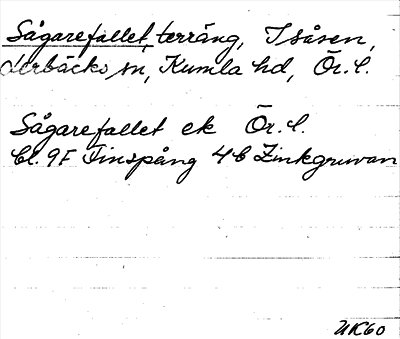 Sågarefallet, terräng, Isåsen,
Lerbäcks sn, Kumla hd, Ör. l.
Sågarefallet ek Ör. l.
bl. 9F Finspång 4b Zinkgruvan
UK60